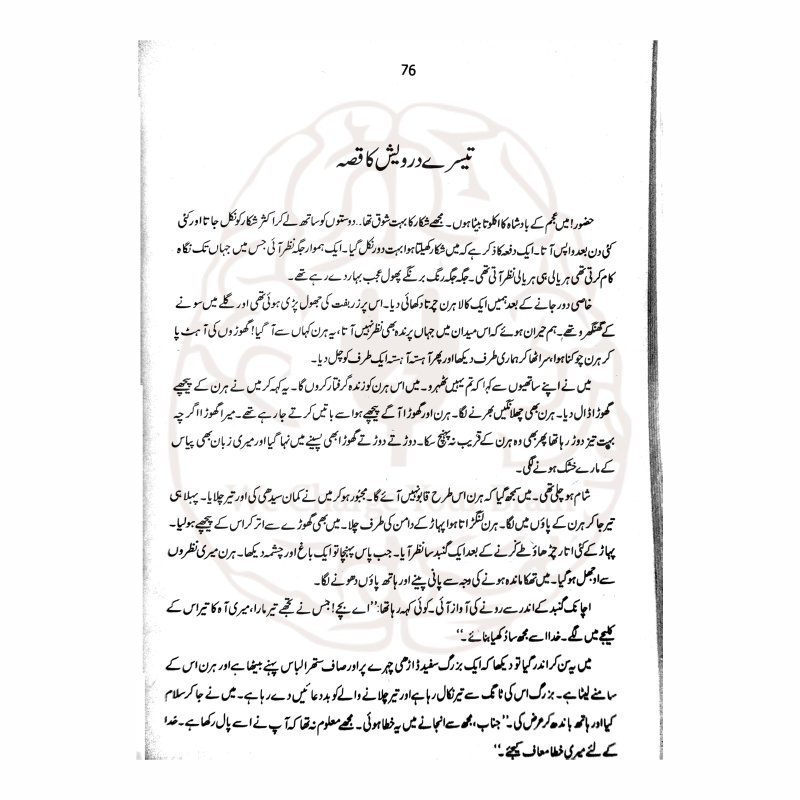 76
تیسرے درویش کا قصہ
حضور! میں عجم کے بادشاہ کا اکلوتا بیٹا ہوں۔ مجھے شکار کا بہت شوق تھا۔ دوستوں کو ساتھ لے کر اکثر شکار کو نکل جاتا اور کئی
کئی دن بعد واپس آتا۔ ایک دفعہ کا ذکر ہے کہ میں شکار کھیلتا ہوا بہت دور نکل گیا۔ ایک ہموار جگہ نظر آئی جس میں جہاں تک نگاہ
کام کرتی تھی ہریالی ہی ہریالی نظر آتی تھی۔ جگہ جگہ رنگ برنگے پھول عجب بہار دے رہے تھے۔
خاصی دور جانے کے بعد ہمیں ایک کالا ہرن چرتا دکھائی دیا۔ اس پر زربفت کی جھول پڑی ہوئی تھی اور گلے میں سونے
کے گھنگھرو تھے۔ ہم حیران ہوئے کہ اس میدان میں جہاں پرندہ بھی نظر نہیں آتا، یہ ہرن کہاں سے آ گیا! گھوڑوں کی آہٹ پا
کر ہرن چوکنا ہوا، سر اٹھا کر ہماری طرف دیکھا اور پھر آہستہ آہستہ ایک طرف کو چل دیا۔
میں نے اپنے ساتھیوں سے کہا کہ تم یہیں ٹھہرو۔ میں اس ہرن کو زندہ گرفتار کروں گا۔ یہ کہہ کر میں نے ہرن کے پیچھے
گھوڑا ڈال دیا۔ ہرن بھی چھلانگیں بھرنے لگا۔ ہرن اور گھوڑا آگے پیچھے ہوا سے باتیں کرتے جا رہے تھے۔ میرا گھوڑا اگرچہ
بہت تیز دوڑ رہا تھا پھر بھی وہ ہرن کے قریب نہ پہنچ سکا۔ دوڑتے دوڑتے گھوڑا بھی پسینے میں نہا گیا اور میری زبان بھی پیاس
کے مارے خشک ہونے لگی۔
شام ہو چلی تھی۔ میں سمجھ گیا کہ ہرن اس طرح قابو نہیں آئے گا۔ مجبور ہو کر میں نے کمان سیدھی کی اور تیر چلایا۔ پہلا ہی
تیر جا کر ہرن کے پاؤں میں لگا۔ ہرن لنگڑاتا ہوا پہاڑ کے دامن کی طرف چلا۔ میں بھی گھوڑے سے اتر کر اس کے پیچھے ہو لیا۔
پہاڑ کے کئی اتار چڑھاؤ طے کرنے کے بعد ایک گنبد سا نظر آیا۔ جب پاس پہنچا تو ایک باغ اور چشمہ دیکھا۔ ہرن میری نظروں
سے اوجھل ہو گیا۔ میں تھکا ماندہ ہونے کی وجہ سے پانی پینے اور ہاتھ پاؤں دھونے لگا۔
اچانک گنبد کے اندر سے رونے کی آواز آئی۔ کوئی کہہ رہا تھا: ''اے بچے! جس نے تجھے تیر مارا، میری آہ کا تیر اس کے
کلیجے میں لگے۔ خدا اسے مجھ سا دُکھیا بنائے۔''
میں یہ سن کر اندر گیا تو دیکھا کہ ایک بزرگ سفید ڈاڑھی چہرے پر اور صاف ستھرا لباس پہنے بیٹھا ہے اور ہرن اس کے
سامنے لیٹا ہے۔ بزرگ اس کی ٹانگ سے تیر نکال رہا ہے اور تیر چلانے والے کو بددعائیں دے رہا ہے۔ میں نے جا کر سلام
کیا اور ہاتھ باندھ کر عرض کی۔ ''جناب، مجھ سے انجانے میں یہ خطا ہوئی۔ مجھے معلوم نہ تھا کہ آپ نے اسے پال رکھا ہے۔ خدا
کے لئے میری خطا معاف کیجئے۔''